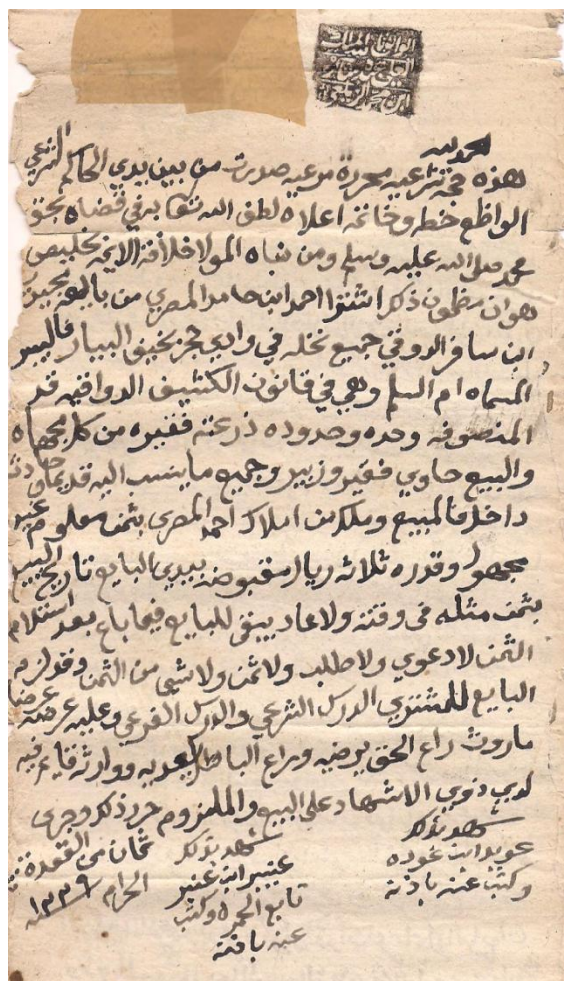 الحمد لله
هذه حجة شرعيه محررة مرعيه صدرت من بين يدي الحاكم الشرعي
الواظع خطه وخاتمه اعلاه لطف الله تعا به في قضاه بحق
محمد صلى الله عليه وسلم ومن شاه المولا
هو ان مظمون ذكر اشترا احمد ابن حامد المصري من بايعه
ابن سافر الدوقي جميع نخله في وادي حجر بخيف البيار فالبير
المسماه ام السلم وهي في قانون الكثيف
المنصوفه وحده وحدوده ذرعته فقيره من كل جهاه
والبيع حاوي فقير وزبير وجميع ما ينسب اليه قديما وحادث
داخل فالمبيع وملك من املاك احمد المصري بثمن معلوم غير
مجهول وقدره ثلاثه ريال مقبوضه بيدي البايع تاريخ البيع
بثمن مثله في وقته ولا عاد يبقى للبايع فيما باع بعد استلام
الثمن لا دعوي ولا طلب ولا ثمن ولا شي من الثمن
البايع للمشتري الدرك الشرعي والدرك الفرعي وعليه
راع الحق يرضيه وراع الباطل
لدي ذوي الاشهاد على البيع والملزوم حرر ذكر وجرى
ثمان من القعدة
الحرام سنه ١٣٣٩
شهد بذلك
عويد ابن عوده
وكتب عنه باذنه
شهد بذلك
عنيبر ابن عنبر
تابع الحمره وكتب
عنه باذنه